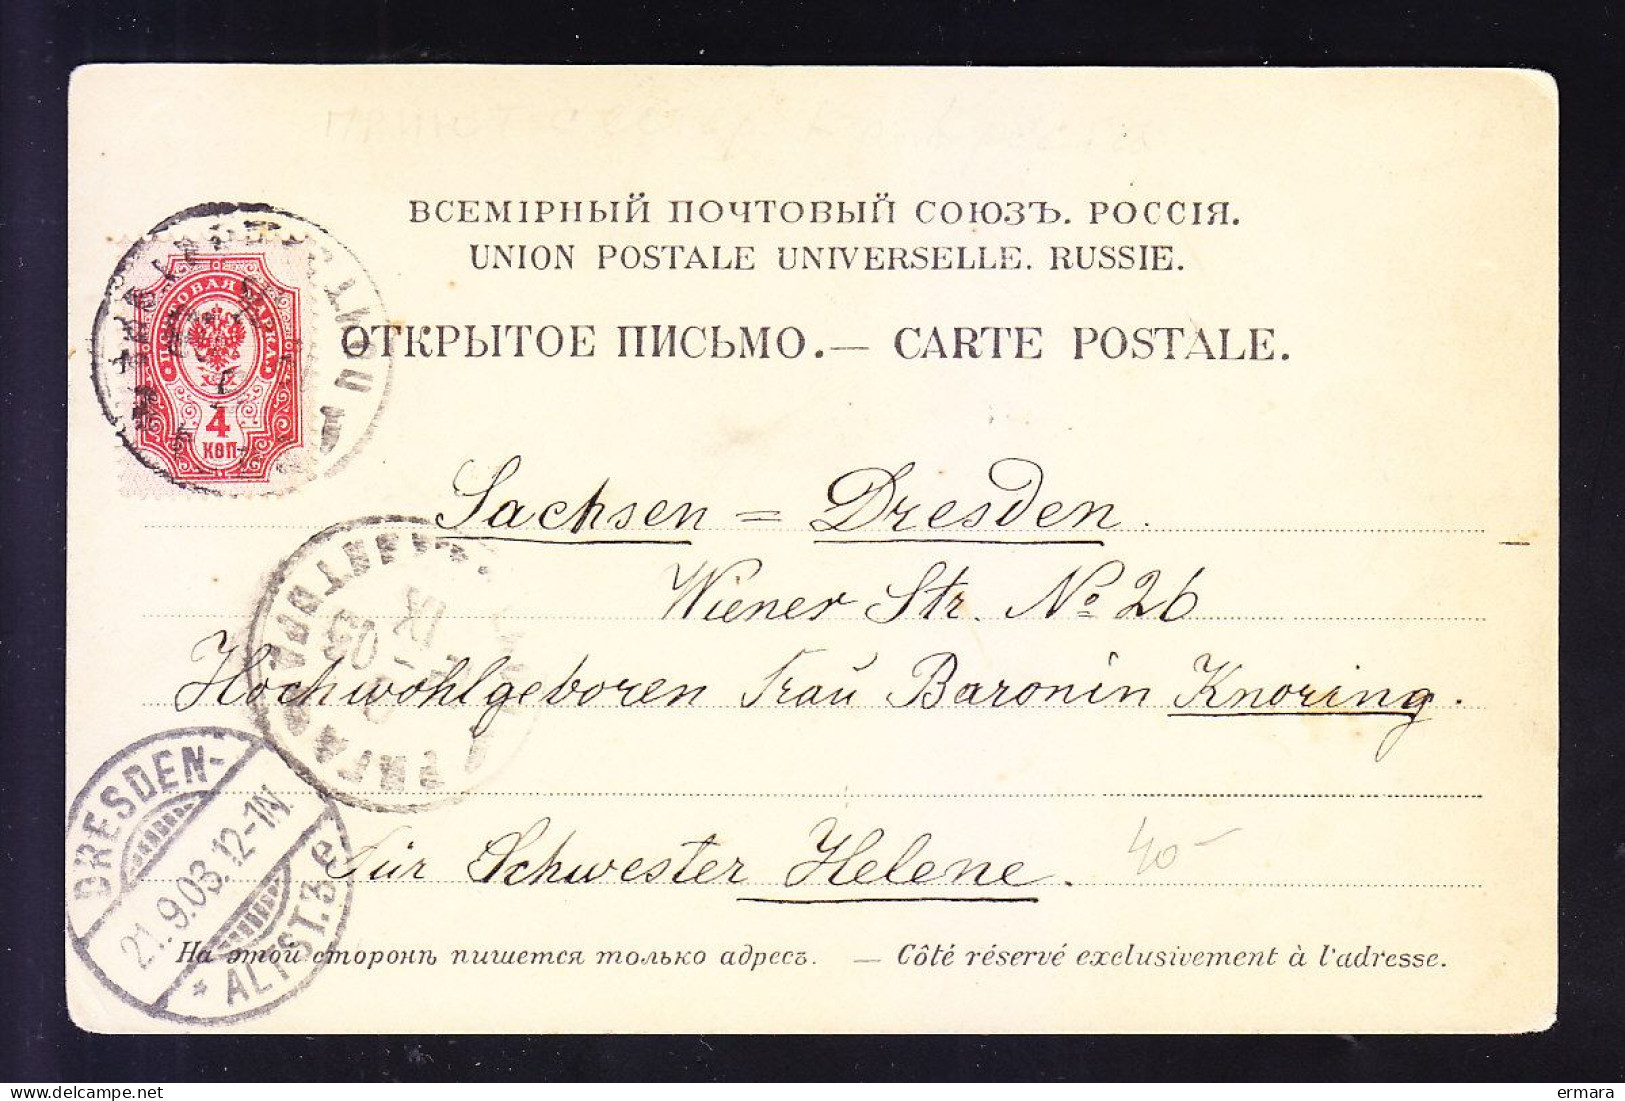 ВСЕМІРНЫЙ ПОЧТОВЫЙ СОЮЗЪ. РОССІЯ.
UNION POSTALE UNIVERSELLE. RUSSIE.
ОТКРЫТОЕ ПИСЬМО. — CARTE POSTALE.
ПОЧТОВАЯ МАРКА
4
КОП
Sachsen = Dresden.
Wiener Str. No 26
Hochwohlgeboren Frau Baronin Knoring.
РИГА
IX
03
DRESDEN-
21.9.03.12-1N.
* ALTST.3 e
Für Schwester Helene.
40-
На этой сторонѣ пишется только адресъ. — Côté réservé exclusivement à l'adresse.
ermara